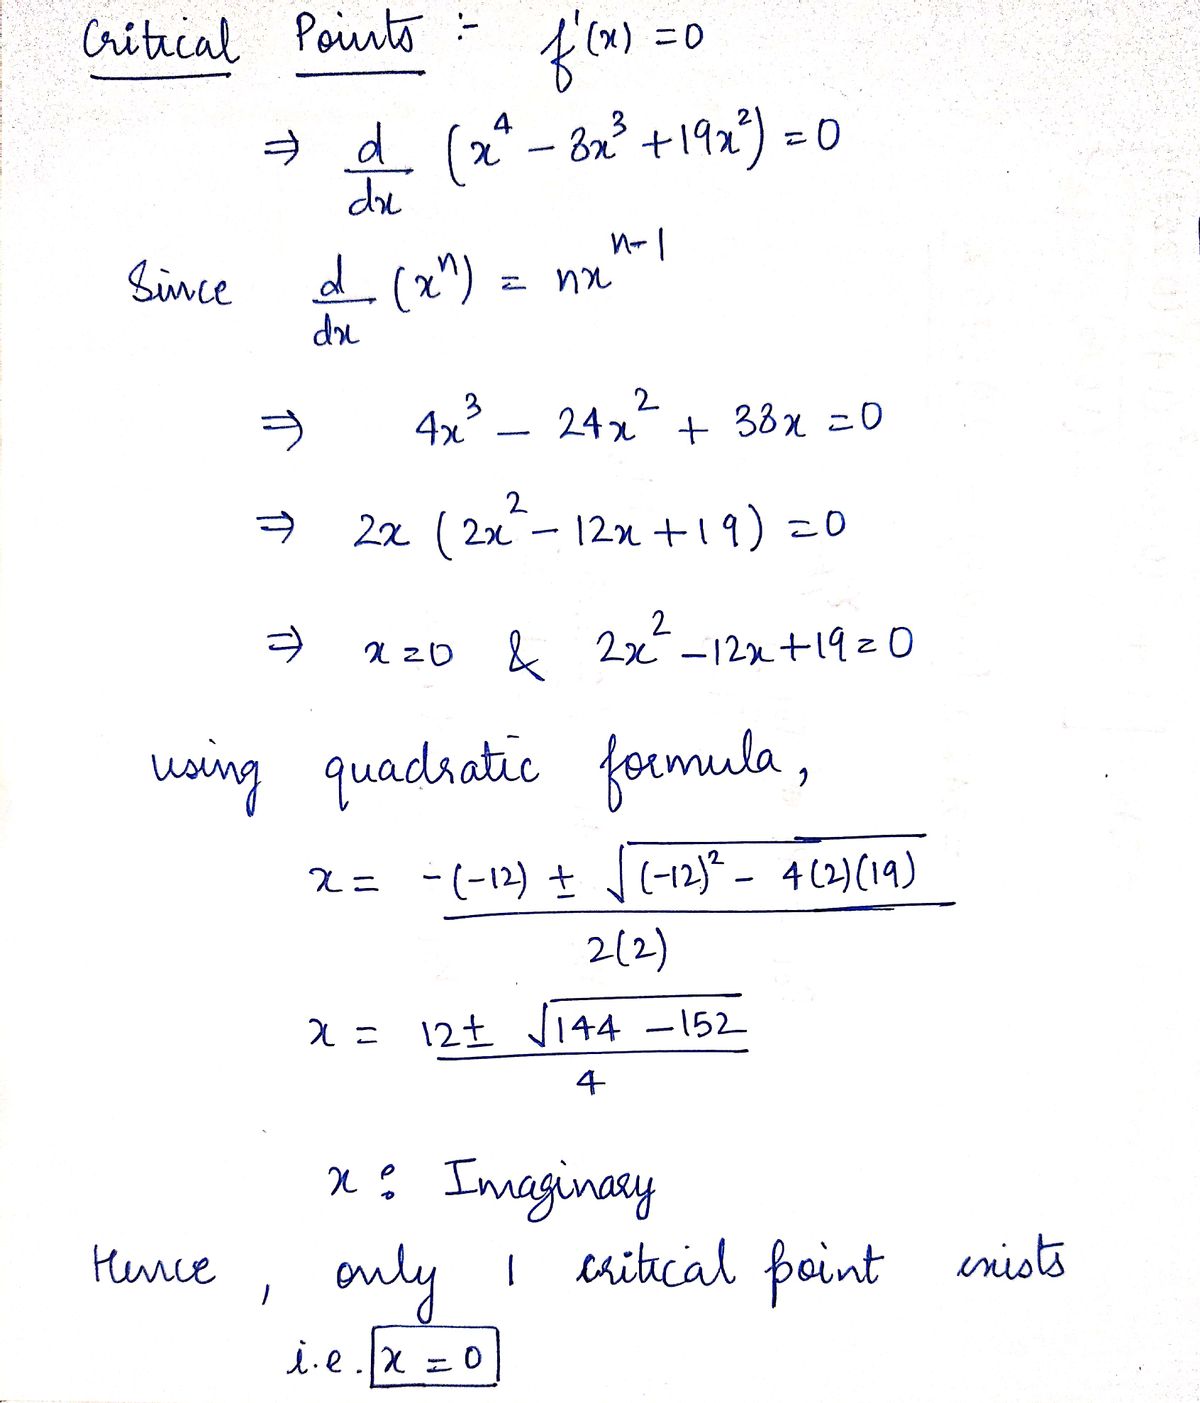 Critical Points :- f'(x) = 0
⇒ d/dx (x⁴ - 8x³ + 19x²) = 0
Since d/dx (xⁿ) = nxⁿ⁻¹
⇒ 4x³ - 24x² + 38x = 0
⇒ 2x (2x² - 12x + 19) = 0
⇒ x = 0 & 2x² - 12x + 19 = 0
using quadratic formula,
x = -(-12) ± √((-12)² - 4(2)(19)) / 2(2)
x = 12 ± √(144 - 152) / 4
x : Imaginary
Hence, only 1 critical point exists
i.e. x = 0